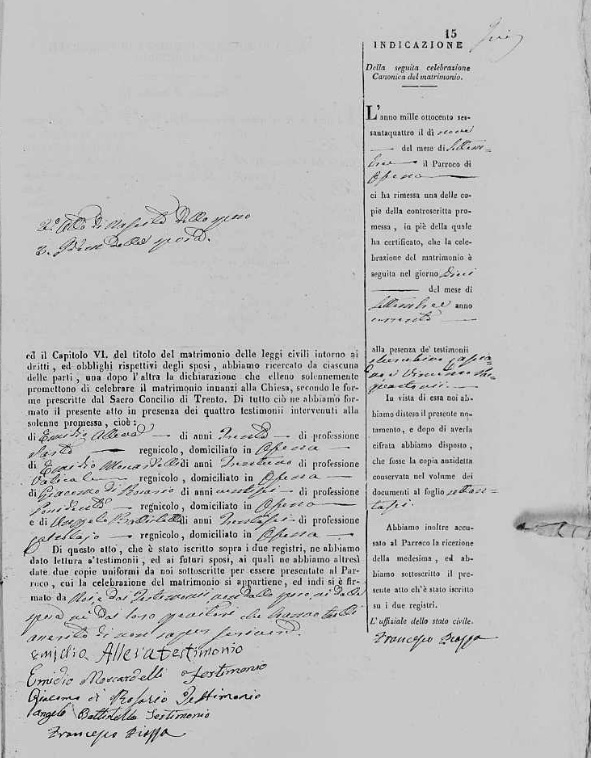 15
INDICAZIONE
Della seguita celebrazione
Canonica del matrimonio.
L'anno mille ottocento ses-
santaquattro il dì nove
del mese di Settem-
bre il Parroco di
Ofena
ci ha rimessa una delle co-
pie della controscritta pro-
messa, in piè della quale
ha certificato, che la cele-
brazione del matrimonio è
seguita nel giorno
del mese di
Settembre anno
corrente
alla pesenza de' testimonii
La vista di essa noi ab-
biamo disteso il presente no-
tamento, e dopo di averla
cifrata abbiamo disposto,
che fosse la copia anzidetta
conservata nel volume dei
documenti al foglio
Abbiamo inoltre accu-
sato al Parroco la ricezione
della medesima, ed ab-
biamo sottoscritto il pre-
sente atto ch'è stato iscritto
su i due registri.
L'uffiziale dello stato civile.
Francesco
2.° Atto di nascita dello sposo
3.
ed il Capitolo VI. del titolo del matrimonio delle leggi civili intorno ai
dritti, ed obblighi rispettivi degli sposi, abbiamo ricercato da ciascuna
delle parti, una dopo l'altra la dichiarazione che elleno solennemente
promettono di celebrare il matrimonio innanzi alla Chiesa, secondo le for-
me prescritte dal Sacro Concilio di Trento. Di tutto ciò ne abbiamo for-
mato il presente atto in presenza dei quattro testimonii intervenuti alla
solenne promessa, cioè:
di di anni trenta di professione
Sarto regnicolo, domiciliato in Ofena
di Emidio Moscardelli di anni di professione
regnicolo, domiciliato in Ofena
di Giacomo di Rosario di anni di professione
regnicolo, domiciliato in Ofena
e di Angelo Battistella di anni di professione
regnicolo, domiciliato in Ofena
Di questo atto, che è stato iscritto sopra i due registri, ne abbiamo
dato lettura a'testimonii, ed ai futuri sposi, ai quali ne abbiamo altresì
date due copie uniformi da noi sottoscritte per essere presentate al Par-
roco, cui la celebrazione del matrimonio si appartiene, ed indi si è fir-
mato da Noi e dai testimoni dallo sposo, nè dalla
sposa nè dai loro genitori che
di non saper scrivere
testimonio
Emidio Moscardelli testimonio
Giacomo di Rosario Testimonio
Angelo Battistella Testimonio
Francesco